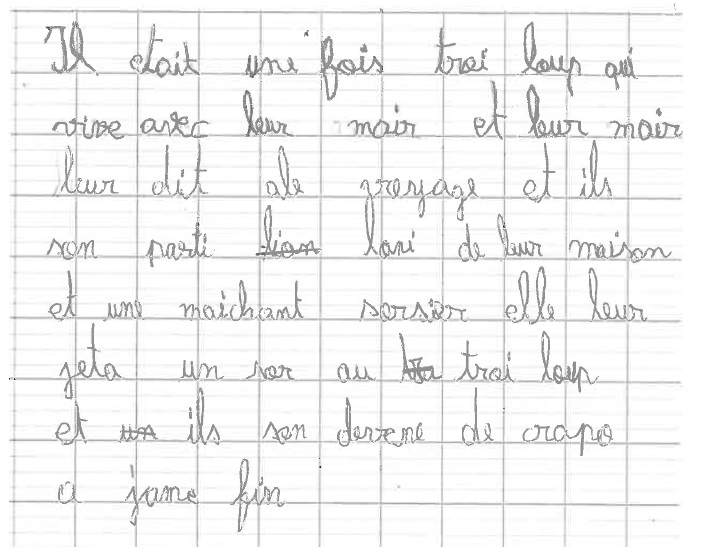 Il etait une fois troi loup qui
vive avec leur mair et leur mair
leur dit ale
et ils
son parti loni de leur maison
et une maichant sorsier elle leur
jeta un sor au troi loup
et ils son devene de crapo
a jame fin